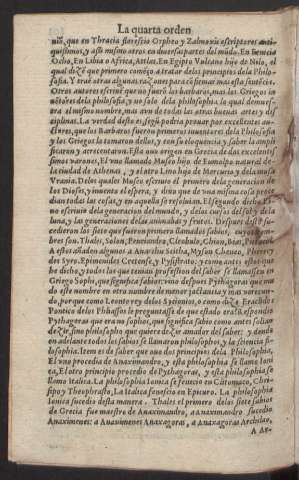 La quarta orden
uiñ, que en Thracia florescio Orpheo y Zalmoxis escriptores anti-
quissimos, y assi mismo otros en diuersas partes del mũdo. En Fenicia
Ocho, En Libia o Africa, Attlas. En Egipto Vulcano hijo de Nilo, el
qual dizẽ que primero començo a tratar de los principios dela Philo-
sofia. Y trae otras algunas razones para cõfirmar mas esta sentẽcia.
Otros autores escriuẽ que no fuerõ los barbaros, mas los Griegos in
uẽtores dela philosofia, y no solo dela philosophia, lo qual demues-
tra el mismo nombre, mas aun de todas las otras buenas artes y dis
ciplinas. La verdad desto es segũ podria prouar por excellentes au-
ctores, que los Barbaros fueron primeros inuentores dela Philosofia
y los Griegos la tomaron dellos, y con su eloquencia y saber la ampli
ficaron y acrescentaron. Esta tuuo origen en Grecia de dos excelentis
simos varones. El vno llamado Museo hijo de Eumolpo natural de
la ciudad de Athenas, y el otro Lino hijo de Mercurio y dela musa
Vrania. Delos quales Museo escriuio el primero dela generacion de
los Dioses, y inuento el espera, y dixo que de vna misma cosa proce
dian todas las cosas, y en aquella se resoluian. El segundo dicho Li-
no escriuio dela generacion del mundo, y delos cursos del sol y dela
luna, y las generaciones delos animales y frutos. Despues destos su
cedieron los siete que fueron primero llamados sabios, cuyos nom-
bres son. Thales, Solon, Periander, Cleobulo, Chilon, Bias, Pittaco.
A estos añaden algunos a Anarchis Scitha, Myson Cheneo, Pherecy
des Syro, Epimenides Cretense, y Pysistrato: y como antes estos que
he dicho, y todos los que tenian profession del saber se llamassen en
Griego Sophi, que significa sabio: vno despues Pythagoras que mu
do este nombre en otro nombre de menor jactancia y mas mereci-
do, porque como Leonte rey delos Sycionios, o como dize Eraclides
Pontico delos Phliasios le preguntasse de que estado era: el respondio
Pythagoras que era no sophos, que significa sabio como antes solian
dezir sino philosopho que quiere dezir amador del saber: y dende
en adelante todos los sabios se llamaron philosophos, y la sciencia fi-
losophia. Item es de saber que vuo dos principios dela Philosophia,
El vno procedio de Anaximandro, y esta philosophia se llamo Ioni
ca, El otro principio procedio de Pythagoras, y esta philosophia se
llamo Italica. La philosophia Ionica se fenecio en Clitomaco, Chri-
sipo y Theophrasto, La Italica fenescio en Epicuro. La philosophia
Ionica sucedio desta manera. Thales el primero delos siete sabios
de Grecia fue maestro de Anaximandro, a Anaximandro sucedio
Anaximenes: a Anaximenes Anaxagoras, a Anaxagoras Archilao,
A Ar-